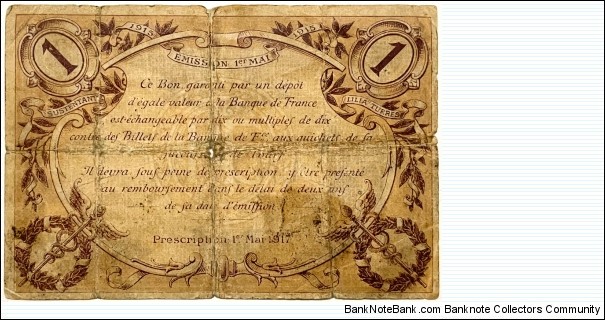 1
1915
1915
1
EMISSION 1er MAI
SUSTENTANT
LILIA TURRES
Ce Bon garanti par un dépôt
d'égale valeur à la Banque de France
est échangeable par dix ou multiples de dix
contre des Billets de la Banque de Fce aux guichets de sa
succursale de Tours
Il devra sous peine de prescription y être présenté
au remboursement dans le délai de deux ans
de sa date d'émission
Prescription 1er Mai 1917
BankNoteBank.com Banknote Collectors Community